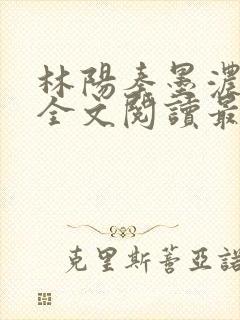 林陽秦墨濃
全文閱讀最
克里斯蒂亞諾